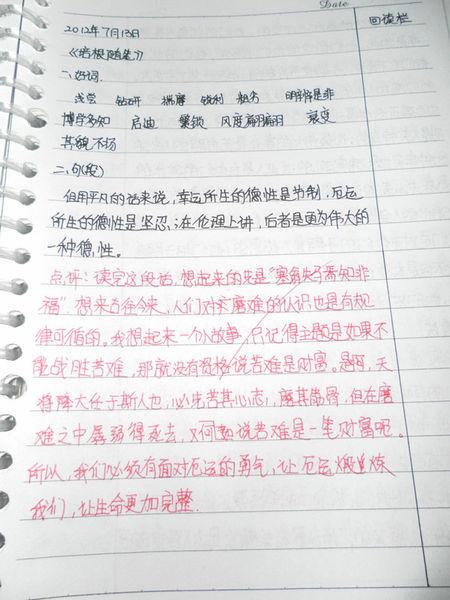 Date
回读栏
2012年7月13日
《培根随笔》
一、好词.
浅尝 钻研 揣摩 锐利 粗劣 明辨是非
博学多知 启迪 繁锁 风度翩翩 衰变
其貌不扬
二、句(段)
但用平凡的话来说，幸运所生的德性是节制，厄运
所生的德性是坚忍；在伦理上讲，后者是更为伟大的
一种德性。
点评：读完这段话，想起来的是"塞翁失马焉知非
福"，想来古往今来，人们对灾磨难的认识也是有规
律可循的。我想起来一个故事，只记得主题是如果不
能战胜苦难，那就没有资格说苦难是财富。是啊，天
将降大任于斯人也，必先苦其心志，磨其筋骨，但在磨
难之中孱弱得死去，又何敢说苦难是一笔财富呢。
所以，我们必须有面对厄运的勇气，让厄运煅炼
我们，让生命更加完整.